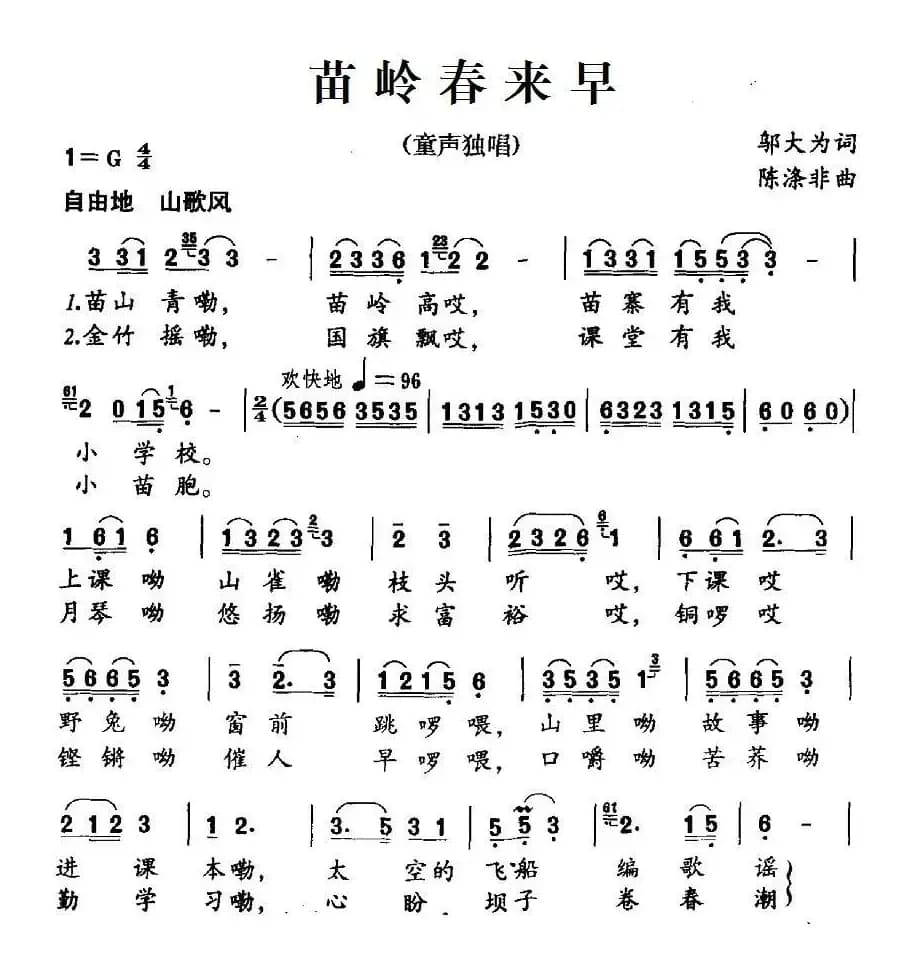 苗岭春来早
(童声独唱)
1=G 4/4
邬大为词
陈涤非曲
自由地 山歌风
3 331 2 35 3 3 - | 2336 1 23 2 2 - | 1331 1553 3 - |
1.苗山 青嘞, 苗岭 高哎, 苗寨 有我
2.金竹 摇嘞, 国旗 飘哎, 课堂 有我
欢快地 ♩=96
61 2 0 15 1 6 - | 2/4 (5656 3535 | 1313 1530 | 6323 1315 | 60 60) |
小 学校。
小 苗胞。
1 61 6 | 1323 2 3 | 2 3 | 2326 6 1 | 6 61 2. 3 |
上课 呦 山雀 嘞 枝头 听 哎, 下课 哎
月琴 呦 悠扬 嘞 求富 裕 哎, 铜啰 哎
5665 3 | 3 2. 3 | 1215 6 | 3535 1 3 | 5665 3 |
野兔 呦 窗前 跳啰 喂, 山里 呦 故事 呦
铿锵 呦 催人 早啰 喂, 口嚼 呦 苦荞 呦
212 3 | 1 2. | 3. 5 31 | 5 5 3 | 61 2. 15 | 6 - |
进 课 本嘞, 太 空的 飞船 编 歌谣
勤 学 习嘞, 心 盼 坝子 卷 春潮